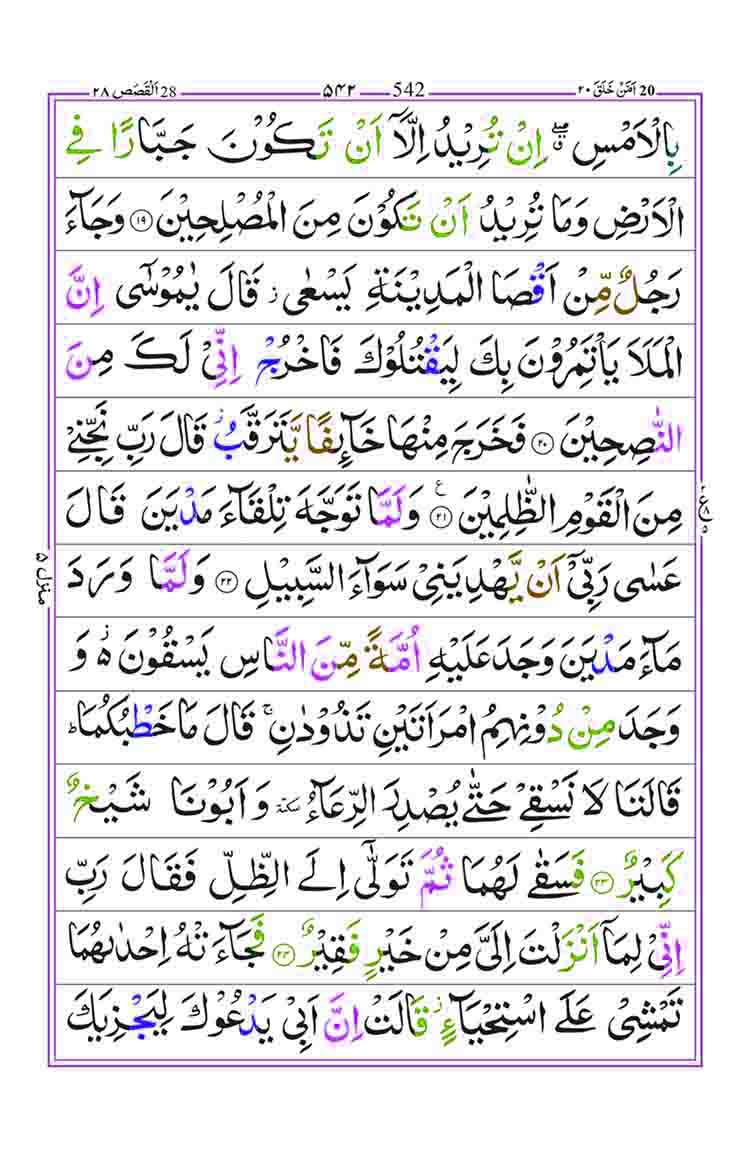 20 اَمَّنْ خَلَقَ ۲۰ 542 ۵۴۲ 28 اَلْقَصَص ۲۸
بِالْاَمْسِ ۖۗ اِنْ تُرِيْدُ اِلَّاۤ اَنْ تَكُوْنَ جَبَّارًا فِي
الْاَرْضِ وَمَا تُرِيْدُ اَنْ تَكُوْنَ مِنَ الْمُصْلِحِيْنَ ۝۱۹ وَجَآءَ
رَجُلٌ مِّنْ اَقْصَا الْمَدِيْنَةِ يَسْعٰى ز قَالَ يٰمُوْسٰۤى اِنَّ
الْمَلَاَ يَاْتَمِرُوْنَ بِكَ لِيَقْتُلُوْكَ فَاخْرُجْ اِنِّيْ لَكَ مِنَ
النّٰصِحِيْنَ ۝۲۰ فَخَرَجَ مِنْهَا خَآئِفًا يَّتَرَقَّبُ ز قَالَ رَبِّ نَجِّنِيْ
مِنَ الْقَوْمِ الظّٰلِمِيْنَ ۝۲۱ ع وَلَمَّا تَوَجَّهَ تِلْقَآءَ مَدْيَنَ قَالَ
عَسٰى رَبِّيْۤ اَنْ يَّهْدِيَنِيْ سَوَآءَ السَّبِيْلِ ۝۲۲ وَلَمَّا وَرَدَ
مَآءَ مَدْيَنَ وَجَدَ عَلَيْهِ اُمَّةً مِّنَ النَّاسِ يَسْقُوْنَ ە۬ وَ
وَجَدَ مِنْ دُوْنِهِمُ امْرَاَتَيْنِ تَذُوْدٰنِ ۚ قَالَ مَا خَطْبُكُمَا ؕ
قَالَتَا لَا نَسْقِيْ حَتّٰى يُصْدِرَ الرِّعَآءُ سكتة وَاَبُوْنَا شَيْخٌ
كَبِيْرٌ ۝۲۳ فَسَقٰى لَهُمَا ثُمَّ تَوَلّٰۤى اِلَى الظِّلِّ فَقَالَ رَبِّ
اِنِّيْ لِمَاۤ اَنْزَلْتَ اِلَيَّ مِنْ خَيْرٍ فَقِيْرٌ ۝۲۴ فَجَآءَتْهُ اِحْدٰىهُمَا
تَمْشِيْ عَلَى اسْتِحْيَآءٍ ز قَالَتْ اِنَّ اَبِيْ يَدْعُوْكَ لِيَجْزِيَكَ
منزل ۵